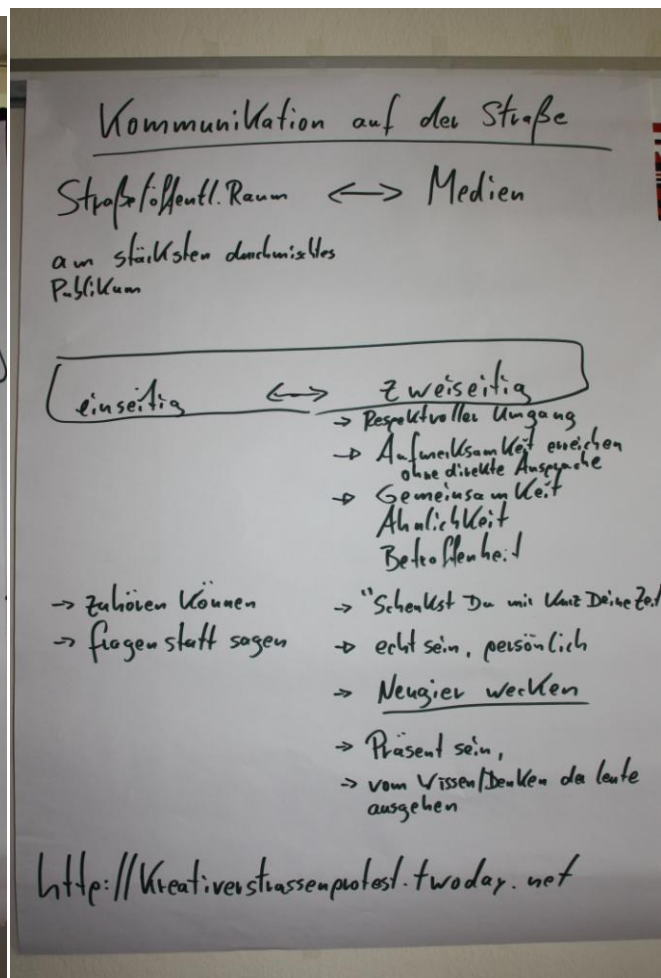 Kommunikation auf der Straße
Straße/öffentl. Raum ⟷ Medien
am stärksten durchmischtes
Publikum
einseitig ⟷ zweiseitig
→ Respektvoller Umgang
→ Aufmerksamkeit erreichen
ohne direkte Ansprache
→ Gemeinsamkeit
Ähnlichkeit
Betroffenheit
→ zuhören können
→ fragen statt sagen
→ "Schenkst Du mir kurz Deine Zeit
→ echt sein, persönlich
→ Neugier wecken
→ Präsent sein,
→ vom Wissen/Denken der Leute
ausgehen
http://kreativerstrassenprotest.twoday.net